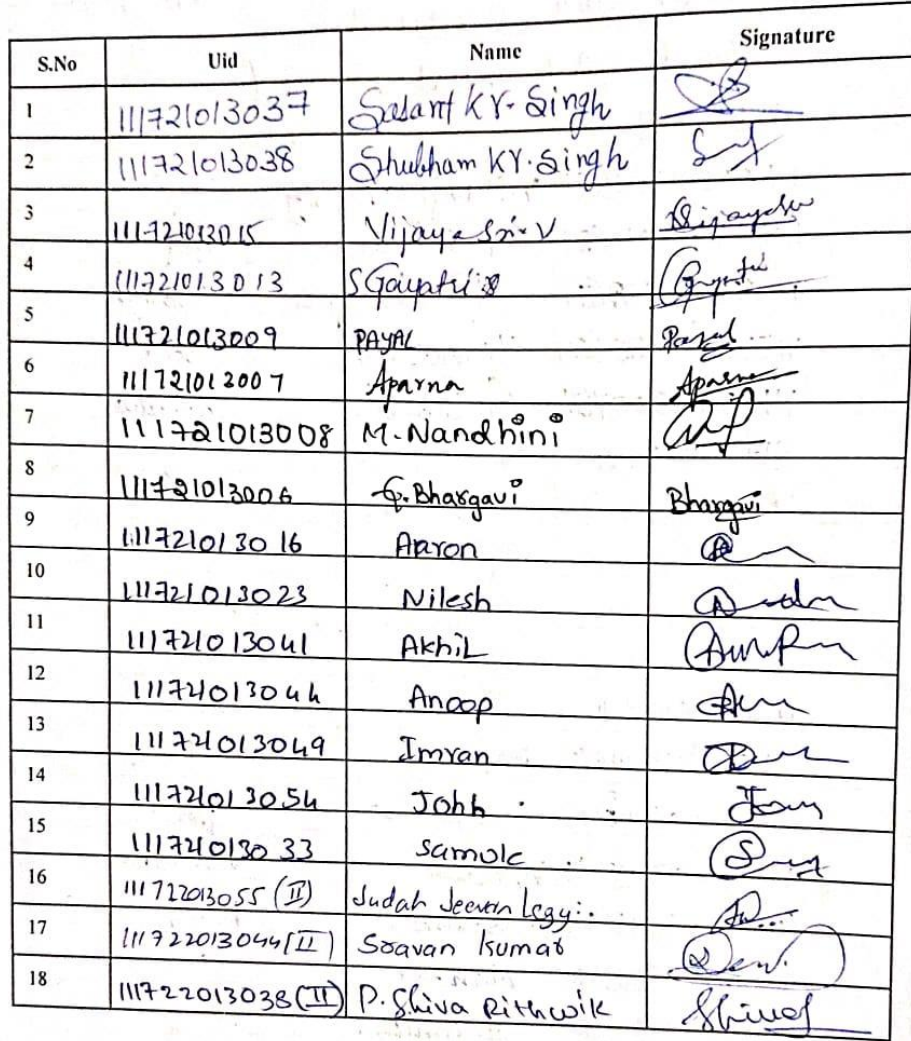 S.No Uid Name Signature
1 111721013037 Sasant Kr. Singh
2 111721013038 Shubham Kr. Singh
3 111721013015 Vijaya Sri. V Vijayasri
4 111721013013 S Gayatri Gayatri
5 111721013009 PAYAL Payal
6 111721013007 Aparna Aparna
7 111721013008 M. Nandhini
8 111721013006 G. Bhargavi Bhargavi
9 111721013016 Aaron
10 111721013023 Nilesh
11 111721013041 Akhil
12 111721013044 Anoop
13 111721013049 Imran
14 111721013054 John
15 111721013033
16 111722013055 (II) Judah Jeevan
17 111722013044 (II) Sravan Kumar
18 111722013038 (II) P. Shiva Rithwik